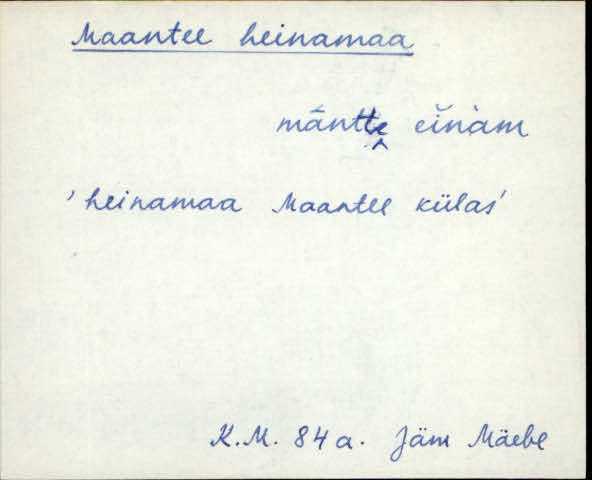 Maantee heinamaa
māntte eĭnàm
'heinamaa Maantee külas'
K.M. 84 a. Jäm Mäebe